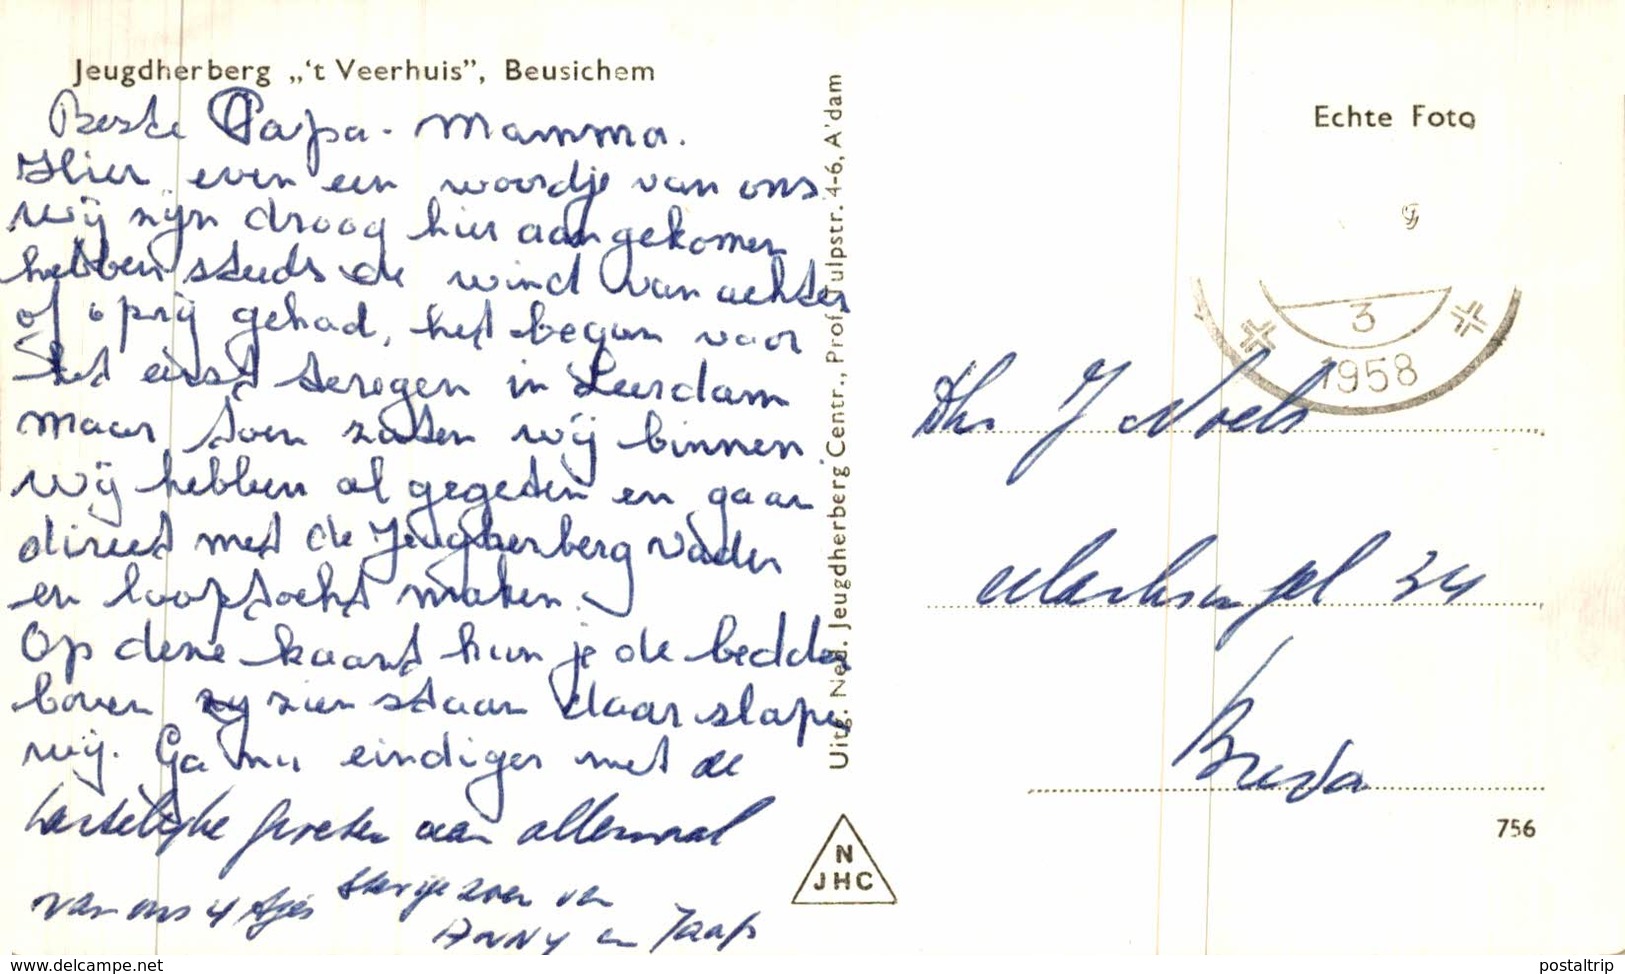 Jeugdherberg „'t Veerhuis”, Beusichem
Beste Papa - Mamma.
Hier even een woordje van ons
wij zijn droog hier aangekomen
hebben steeds de wind van achter
of opzij gehad, het begon voor
het eerst te regen in Leerdam
maar toen zaten wij binnen
Wij hebben al gegeten en gaan
direct met de Jeugdherberg Vader
en looptocht maken.
Op deze kaart kun je de bedden
boven zien staan daar slapen
wij. Ga nu eindigen met de
hartelijke groeten aan allemaal
van ons 4 tjes
Stevige zoen van
Anny en Jaap
Uitg. Ned. Jeugdherberg Centr., Prof. Tulpstr. 4-6, A'dam
N
JHC
Echte Foto
3
1958
Dhr J Noels
34
Breda
756
www.delcampe.net
postaltrip